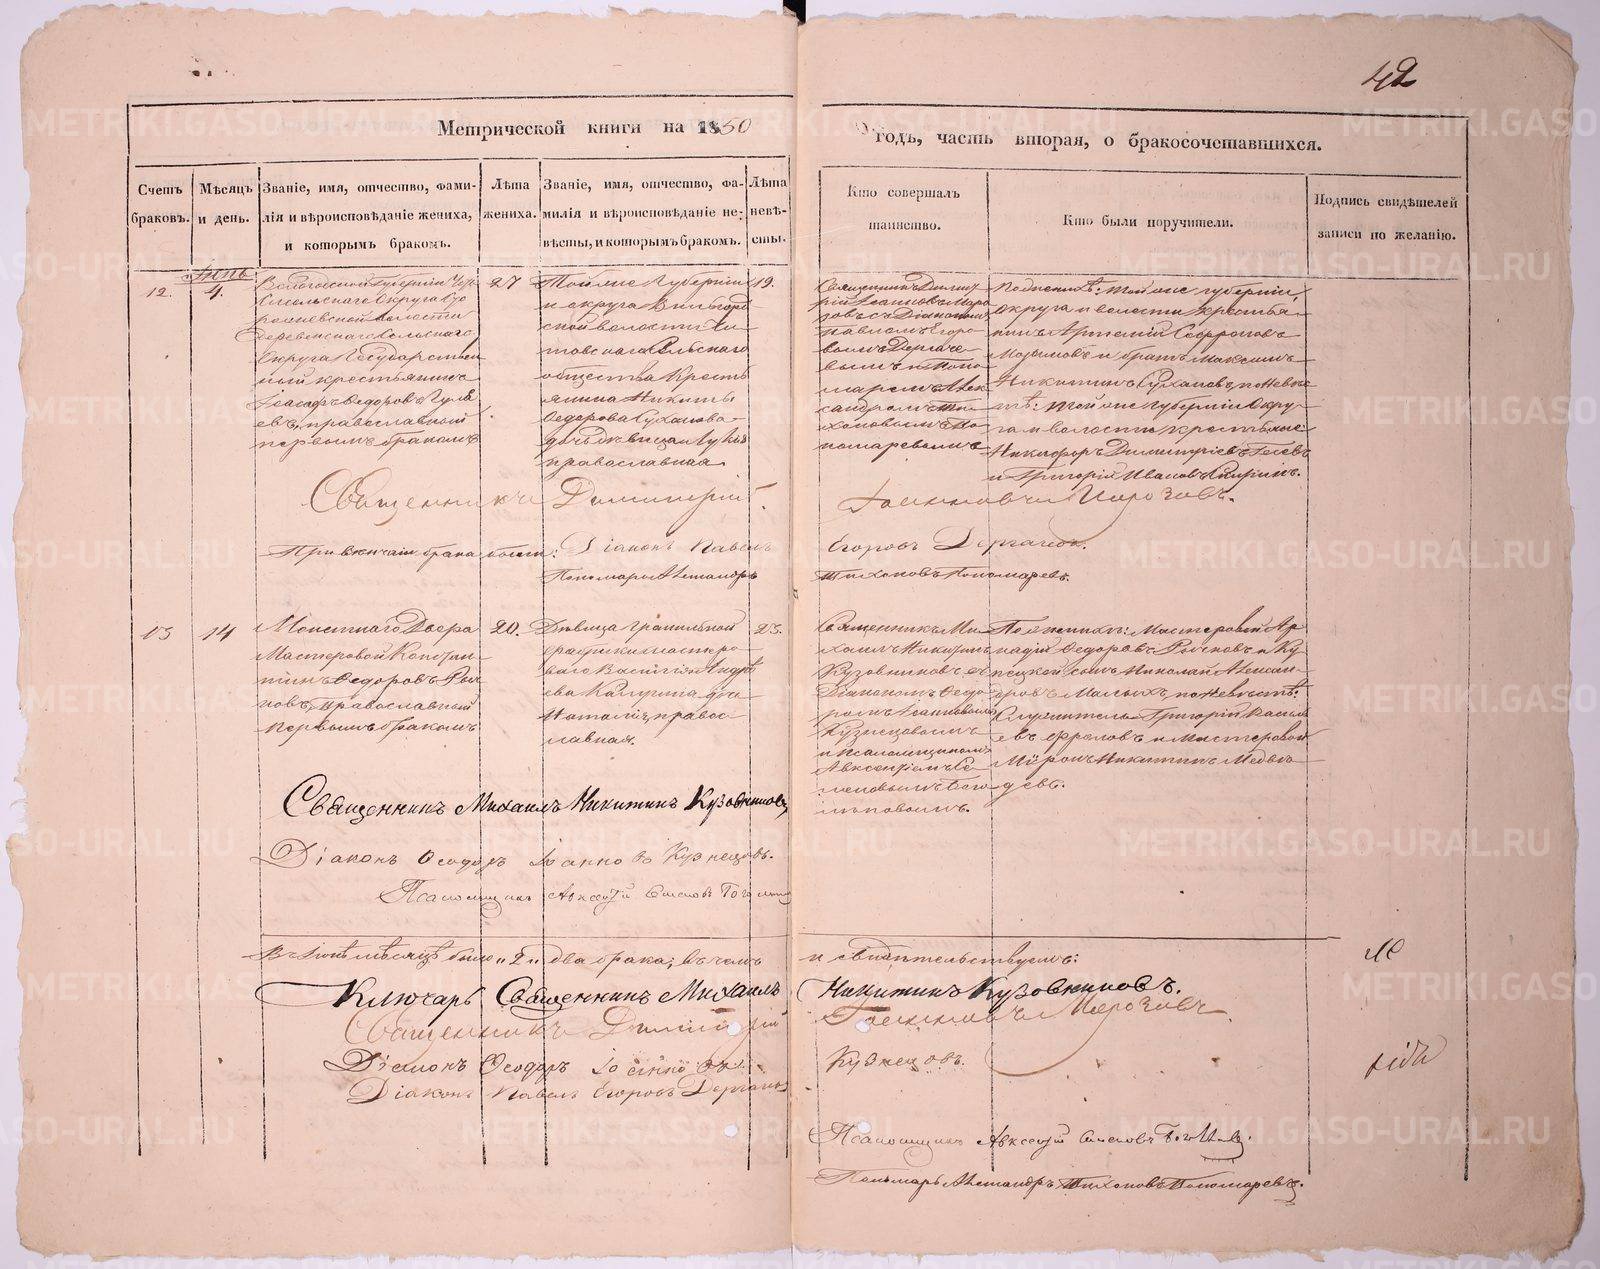 42
Метрической книги на 1850
годъ, часть вторая, о бракосочетавшихся.
Счетъ браковъ.
Мѣсяцъ и день.
Званіе, имя, отчество, фами-
лія и вѣроисповѣданіе жениха,
и которымъ бракомъ.
Лѣта жениха.
Званіе, имя, отчество, фа-
милія и вѣроисповѣданіе не-
вѣсты, и которымъ бракомъ.
Лѣта невѣ-
сты.
Кто совершалъ
таинство.
Кто были поручители.
Подпись свидѣтелей
записи по желанію.
12.
4.
Вологодской Губерніи
Округа
волости
Округа Государствен
ный крестьянинъ
Ѳедоровъ
православный
первымъ бракомъ
27
Той же Губерніи
и округа
ской волости
Сельскаго
общества Кресть
янина Никиты
Ѳедорова Суханова
дочь дѣвица
православная
19.
Священникъ Димит
рій Іоанновъ Моро
зовъ съ Діакономъ
Павломъ Егоро
вымъ Дергаче
вымъ и Поно
маремъ Алек
сандромъ Ти
хоновымъ По
номаревымъ
По женихѣ: той же губерніи,
округа и волости крестья
нинъ Артемій Софроновъ
и братъ Максимъ
Никитинъ Сухановъ, по невѣс
тѣ: той же Губерніи Окру
га и волости крестьяне:
Никифоръ Димитріевъ
и Григорій Ивановъ
Священникъ Димитрій Іоанновъ Морозовъ.
При вѣнчаніи брака были: Діаконъ Павелъ Егоровъ Дергачевъ.
Пономарь Александръ Тихоновъ Пономаревъ.
13
14
Монетнаго Двора
Мастеровой Констан
тинъ Ѳедоровъ Рыч
ковъ, Православный
первымъ бракомъ
20.
Дѣвица гранильной
фабрики мастеро
ваго Василія Андре
ева дочь
Наталія, правос
лавная.
23.
Священникъ Ми
хаилъ Никитинъ
Кузовниковъ съ
Діакономъ Ѳедо
ромъ Іоанновымъ
Кузнецовымъ
и Псаломщикомъ
Авксентіемъ Се
меновымъ Бого
лѣповымъ.
По женихѣ: Мастеровой Ар
кадій Ѳедоровъ Рычковъ и Ку
пецкой сынъ Николай Алексан
дровъ Малыхъ, по невѣстѣ:
Служитель Григорій Василь
евъ Фроловъ и Мастеровой
Миронъ Никитинъ Медвѣ
девъ.
Священникъ Михаилъ Никитинъ Кузовниковъ
Діаконъ Ѳеодоръ Іоанновъ Кузнецовъ.
Псаломщикъ Авксентій Семеновъ Боголѣповъ
мѣсяцѣ было „2„ два брака; въ чемъ и свидѣтельствуемъ:
Ключарь Священникъ Михаилъ Никитинъ Кузовниковъ.
Священникъ Димитрій Іоанновъ Морозовъ
Діаконъ Ѳеодоръ Іоанновъ Кузнецовъ.
Діаконъ Павелъ Егоровъ Дергачевъ
Псаломщикъ Авксентій Семеновъ Боголѣповъ.
Пономарь Александръ Тихоновъ Пономаревъ.
METRIKI.GASO-URAL.RU